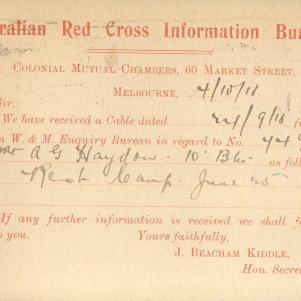 ralian Red Cross Information Bu
Colonial Mutual Chambers, 60 Market Street,
Melbourne, 4/10/18
Sir,
We have received a Cable dated 24/9/18
n W. & M. Enquiry Bureau in regard to No. 449
A G Haydon. 10 Bn. as follo
Camp. June 25
If any further information is received we shall
o you. Yours faithfully,
J. BEACHAM KIDDLE,
Hon. Secre